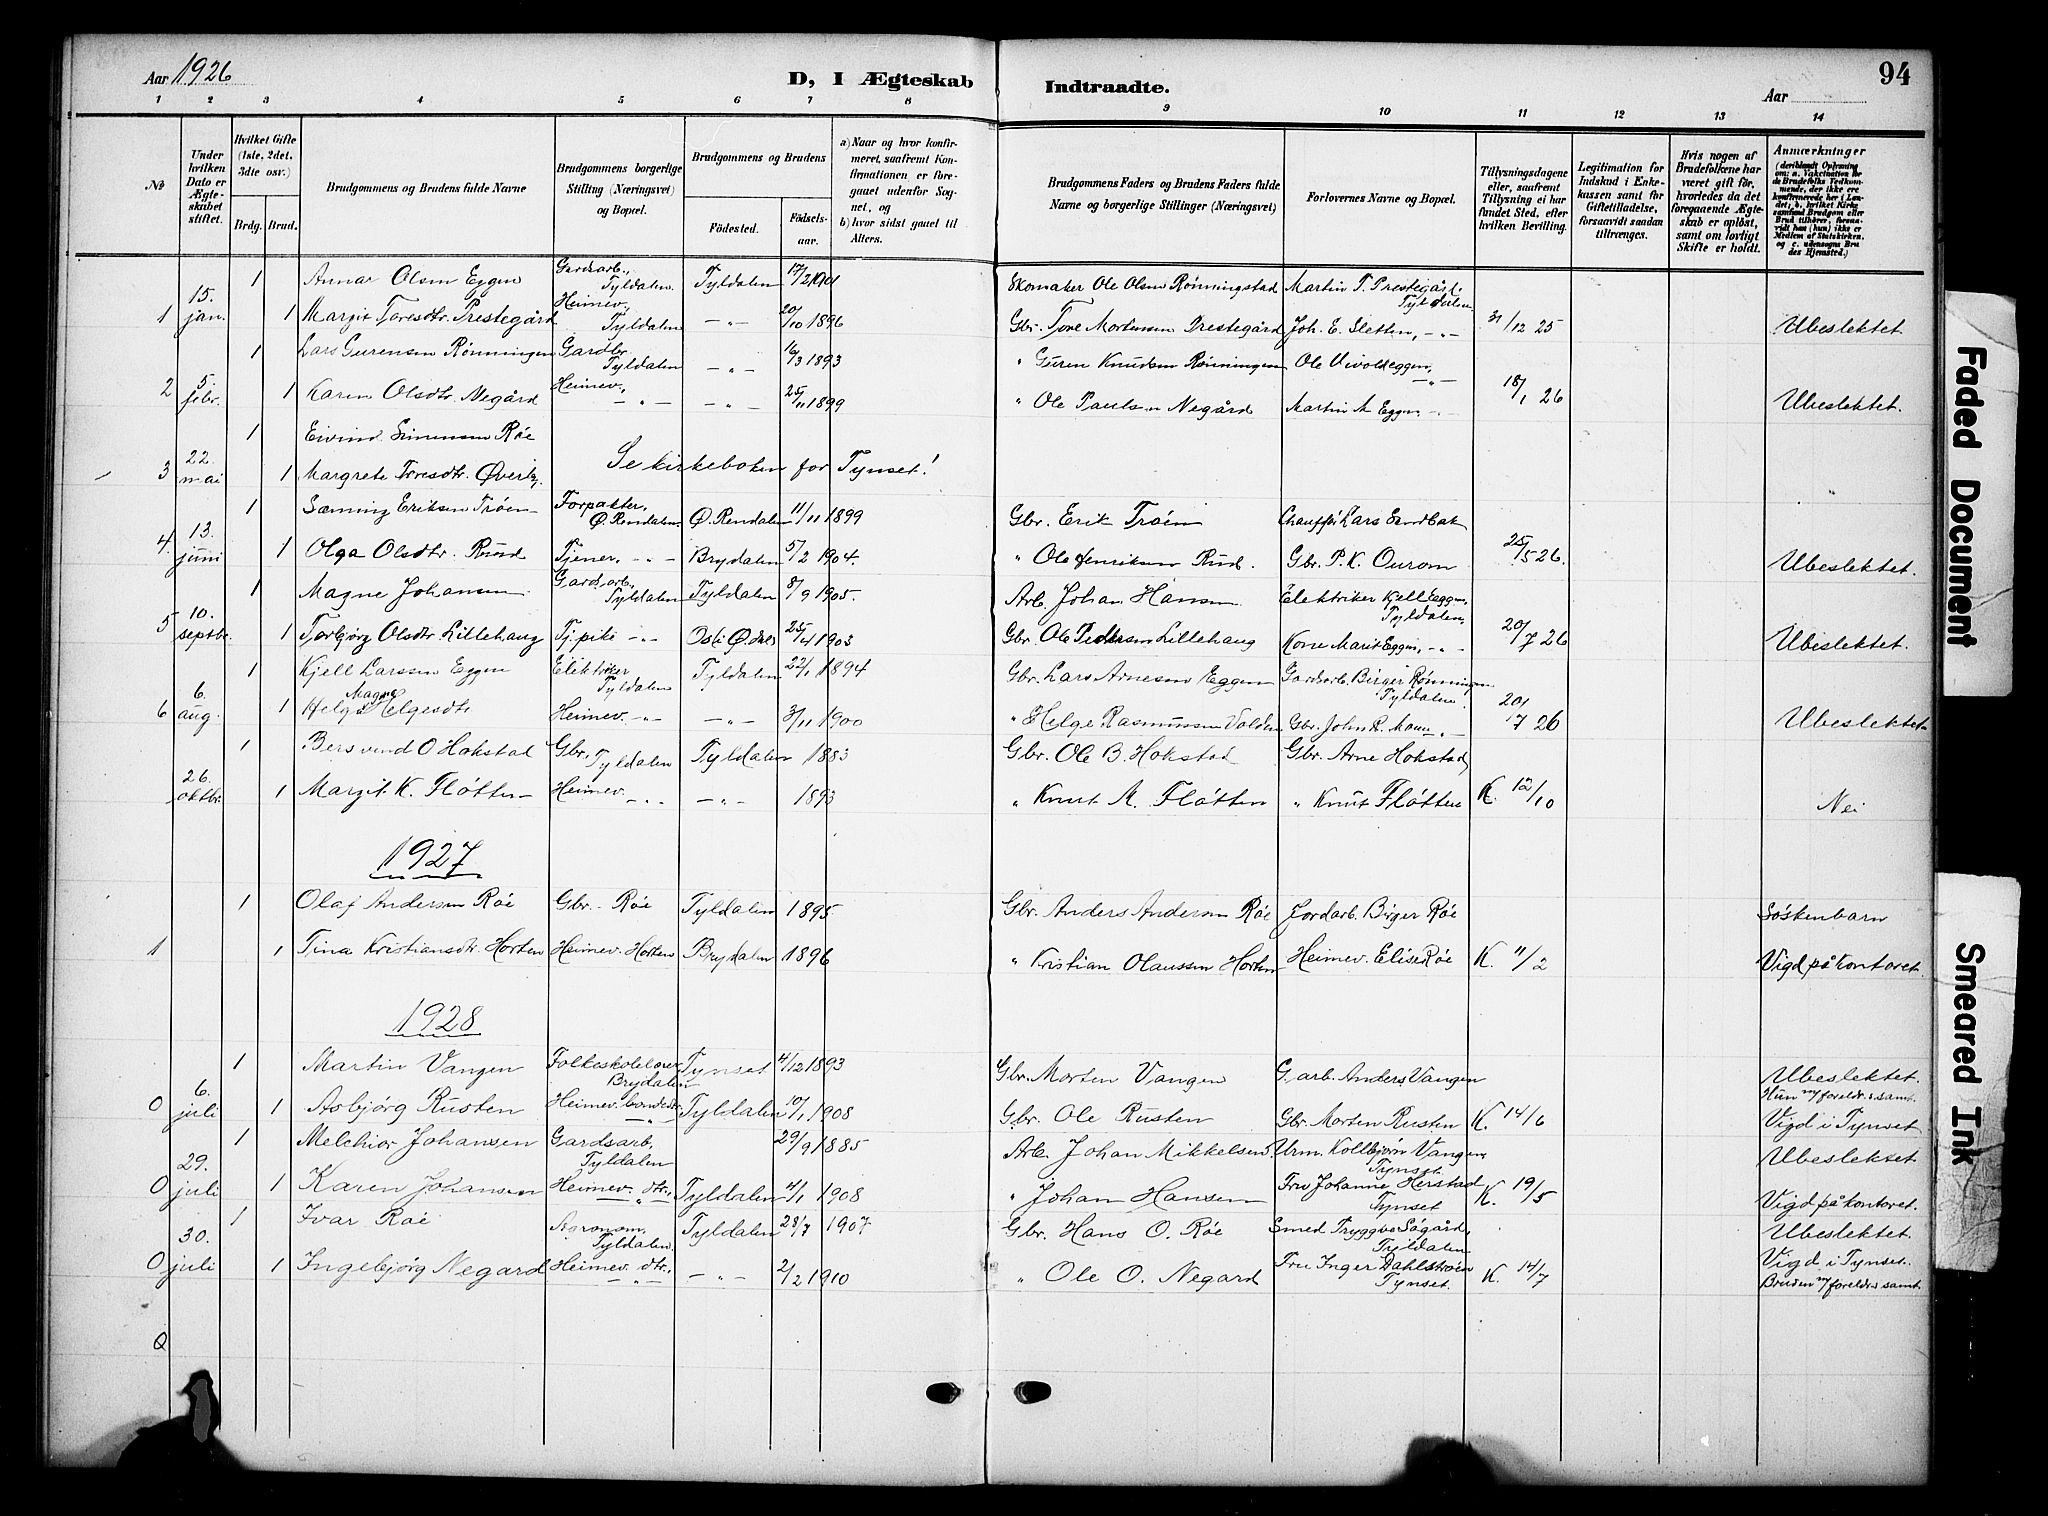 Aar 1926
D, I Ægteskab Indtraadte.
Aar
94
1 2 3 4 5 6 7 8 9 10 11 12 13 14
No
Under hvilken Dato er Ægteskabet stiftet.
Hvilket Gifte (1ste, 2det, 3dte osv.)
Brdg. Brud.
Brudgommens og Brudens fulde Navne
Brudgommens borgerlige Stilling (Næringsvei) og Bopæl.
Brudgommens og Brudens
Fødested.
Fødselsaar.
a) Naar og hvor konfirmeret, saafremt Konfirmationen er foregaaet udenfor Sognet, og
b) hvor sidst gaaet til Alters.
Brudgommens Faders og Brudens Faders fulde Navne og borgerlige Stillinger (Næringsvei)
Forlovernes Navne og Bopæl.
Tillysningsdagene eller, saafremt Tillysning ei har fundet Sted, efter hvilken Bevilling.
Legitimation for Indskud i Enkekassen samt for Giftetilladelse, forsaavidt saadan tiltrænges.
Hvis nogen af Brudefolkene har været gift før, hvorledes da det foregaaende Ægteskab er opløst, samt om lovligt Skifte er holdt.
Anmærkninger
1 Annar Olsen Eggen Gardsarb., Tyldalen. Tyldalen 17/2 1901 Skomaker Ole Olsen Rønningstad Martin T. Prestegård, Tyldalen
1 15. jan. 1 Margit Toresdtr. Prestegård Heimev., Tyldalen -„- 20/10 1896 Gbr. Tore Mortensen Prestegård Joh. E. Sletten, -„- 31/12 25 Ubeslektet
1 Lars Gurensen Rønningen Gardbr. Tyldalen -„- 16/3 1893 „ Guren Knudsen Rønningen Ole Uvoldeggen, -„-
2 5. febr. 1 Karen Olsdtr. Negård Heimev., -„- -„- 25/11 1899 „ Ole Paulsen Negård Martin M. Eggen -„- 18/1 26 Ubeslektet.
1 Eivind Simensen Røe
3 22. mai 1 Margrete Toresdtr. Øverby. Se kirkeboken for Tynset!
1 Sæming Eriksen Trøen Forpakter, Ø. Rendalen. Ø. Rendalen 11/11 1899 Gbr. Erik Trøen Chauffør Lars Sandbak
4. 13. juni 1 Olga Olsdtr. Ruud Tjener, -„- Brydalen 5/2 1904. „ Ole Henriksen Ruud. Gbr. P. K. Ourom 25/5 26. Ubeslektet.
1 Magne Johansen Gardsarb., Tyldalen Tyldalen 8/9 1905. Arb. Johan Hansen Elektriker Kjell Eggen, Tyldalen
5 10. septbr. 1 Torbjørg Olsdtr. Lillehaug Tj.pike -„- 25/4 1903 Gbr. Ole Pedersen Lillehaug Kone Marit Eggen, -„- 20/7 26 Ubeslektet.
1 Kjell Larssen Eggen Elektriker Tyldalen Tyldalen 22/1 1894 Gbr. Lars Arnesen Eggen Gardsarb. Birger Rønningen Tyldalen.
6 6. aug. 1 Helga Magna Helgesdtr Heimev. -„- -„- 3/11 1900 „ Helge Rasmussen Volden Gbr. John R. Moen -„- 20/7 26 Ubeslektet
1 Bersvend O Hokstad Gbr. Tyldalen Tyldalen 1883 Gbr. Ole B. Hokstad Gbr. Arne Hokstad
26. oktbr. 1 Margit K. Fløtten Heimev. -„- -„- 1893 „ Knut M. Fløtten „ Knut Fløtten K. 12/10 Nei
1927
1 Olaf Andersen Røe Gbr. Røe Tyldalen 1895 Gbr. Anders Andersen Røe Jordarb. Birger Røe Søskenbarn
1 1 Tina Kristiansdtr. Horten Heimev. Horten Brydalen 1896 „ Kristian Olaussen Horten Heimev. Elise Røe K. 11/2 Vigd på kontoret.
1928
1 Martin Vangen Folkeskolelærer Brydalen Tynset 4/12 1893 Gbr. Morten Vangen G. arb. Anders Vangen Ubeslektet.
0 6. juli 1 Asbjørg Rusten Heimev. bondedtr. -„- Tyldalen 10/1 1908 Gbr. Ole Rusten Gbr. Morten Rusten K. 14/6 Hun m/ foreldres samt. Vigd i Tynset
1 Melchior Johansen Gardsarb, Tyldalen 29/9 1885 Arb. Johan Mikkelsen. Urm. Kollbjørn Vangen, Tynset. Ubeslektet.
0 29. juli 1 Karen Johansen Heimev. dtr., -„- Tyldalen 4/1 1908 „ Johan Hansen Fru Johanne Herstad Tynset K. 19/5 Vigd på kontoret.
1 Ivar Røe Agronom, Tyldalen. Tyldalen 23/7 1907 Gbr. Hans O. Røe Smed Tryggve Søgård, Tyldalen Ubeslektet.
0 30. juli 1 Ingebjørg Negard Heimev. dtr., -„- -„- 2/2 1910 „ Ole O. Negard Fru Inger Dahlstrøen Tynset. K. 14/7 Vigd i Tynset. Bruden m/ foreldres samt.
0
Faded Document
Smeared Ink